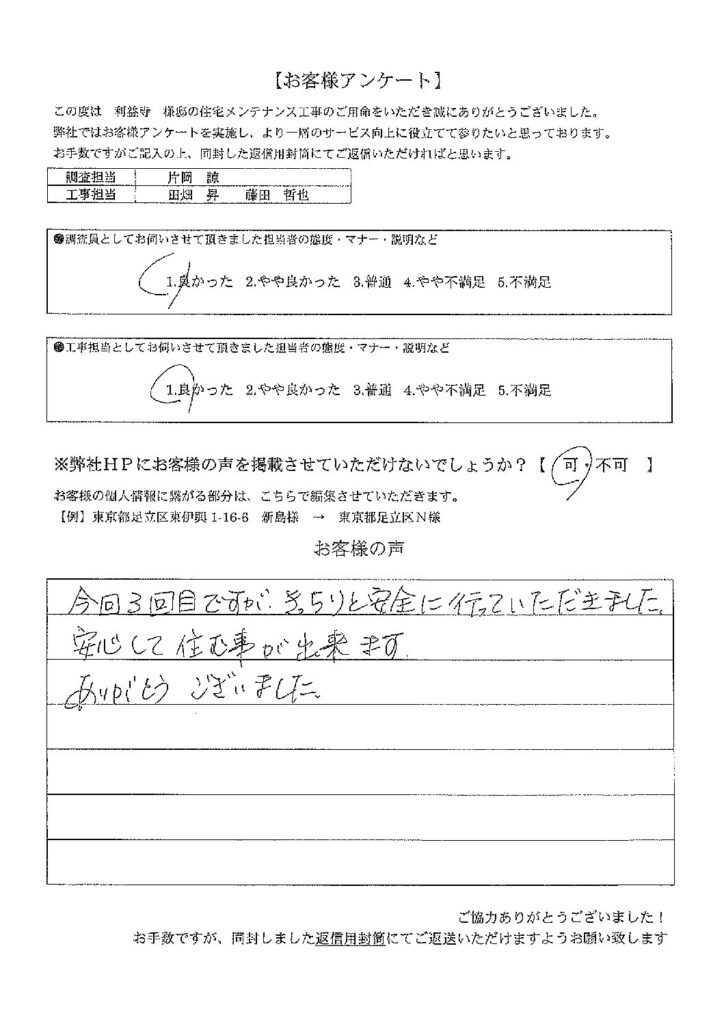 【お客様アンケート】
この度は　利益寺　様邸の住宅メンテナンス工事のご用命をいただき誠にありがとうございました。
弊社ではお客様アンケートを実施し、より一層のサービス向上に役立てて参りたいと思っております。
お手数ですがご記入の上、同封した返信用封筒にてご返信いただければと思います。
調査担当　片岡　諒
工事担当　田畑　昇　　藤田　哲也
●調査員としてお伺いさせて頂きました担当者の態度・マナー・説明など
1.良かった　2.やや良かった　3.普通　4.やや不満足　5.不満足
●工事担当としてお伺いさせて頂きました担当者の態度・マナー・説明など
1.良かった　2.やや良かった　3.普通　4.やや不満足　5.不満足
※弊社ＨＰにお客様の声を掲載させていただけないでしょうか？【　可・不可　】
お客様の個人情報に繋がる部分は、こちらで編集させていただきます。
【例】東京都足立区東伊興1-16-6　新島様　→　東京都足立区Ｎ様
お客様の声
今回3回目ですが、きっちりと安全に行っていただきました。
安心して住む事が出来ます。
ありがとうございました。
ご協力ありがとうございました！
お手数ですが、同封しました返信用封筒にてご返送いただけますようお願い致します